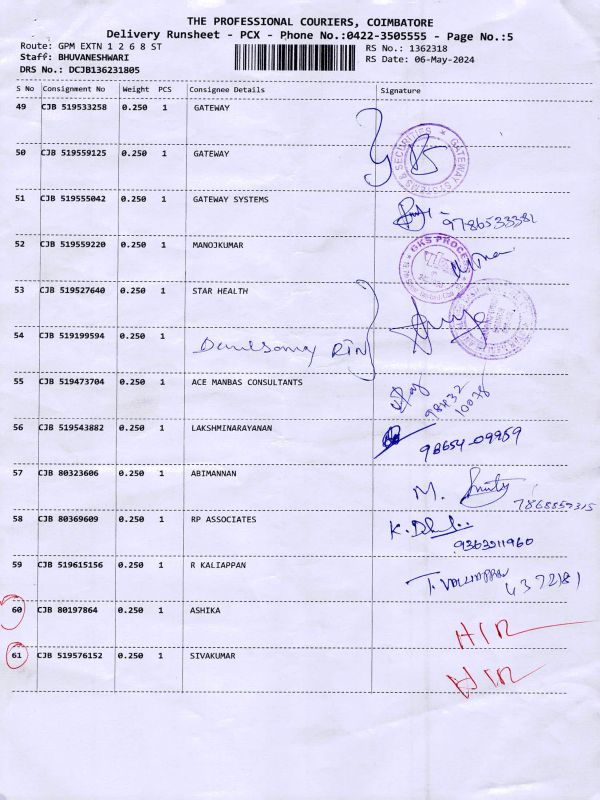 THE PROFESSIONAL COURIERS, COIMBATORE
Delivery Runsheet - PCX - Phone No.:0422-3505555 - Page No.:5
Route: GPM EXTN 1 2 6 8 ST
RS No.: 1362318
Staff: BHUVANESHWARI
RS Date: 06-May-2024
DRS No.: DCJB136231805
S No Consignment No Weight PCS Consignee Details Signature
49 CJB 519533258 0.250 1 GATEWAY
50 CJB 519559125 0.250 1 GATEWAY
GATEWAY SYSTEMS & SECURITIES
51 CJB 519555042 0.250 1 GATEWAY SYSTEMS
9786533381
52 CJB 519559220 0.250 1 MANOJKUMAR
GKS PROCE
53 CJB 519527640 0.250 1 STAR HEALTH
54 CJB 519199594 0.250 1
55 CJB 519473704 0.250 1 ACE MANBAS CONSULTANTS
56 CJB 519543882 0.250 1 LAKSHMINARAYANAN
98654-09959
57 CJB 80323606 0.250 1 ABIMANNAN
M.
58 CJB 80369609 0.250 1 RP ASSOCIATES
K.
59 CJB 519615156 0.250 1 R KALIAPPAN
4372181
60 CJB 80197864 0.250 1 ASHIKA
61 CJB 519576152 0.250 1 SIVAKUMAR